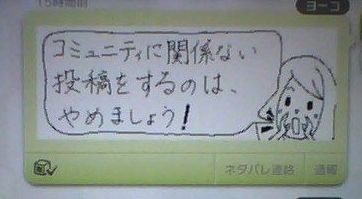 15時間前
ヨーコ
コミュニティに関係ない
投稿をするのは、
やめましょう!
ネタバレ連絡
通報